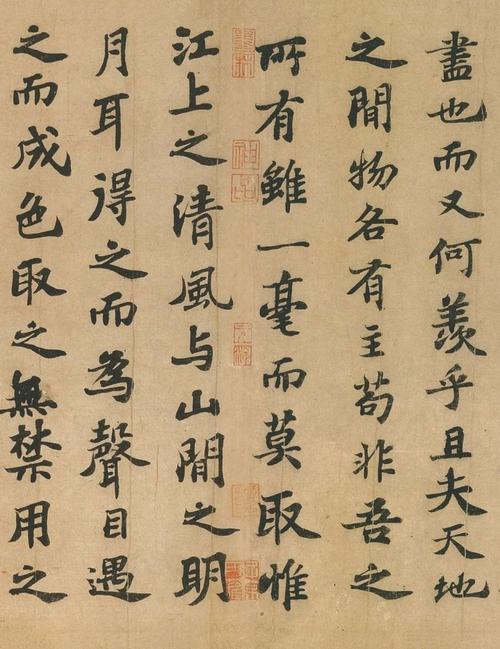 盡也而又何羨乎且夫天地
之閒物各有主苟非吾之
所有雖一毫而莫取惟
江上之清風与山閒之明
月耳得之而為聲目遇
之而成色取之無禁用之